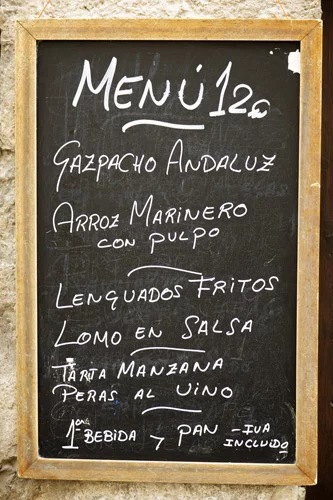 MENÚ 12.
GAZPACHO ANDALUZ
ARROZ MARINERO
CON PULPO
LENGUADOS FRITOS
LOMO EN SALSA
TARTA MANZANA
PERAS AL VINO
1ª BEBIDA Y PAN - IVA
INCLUIDO